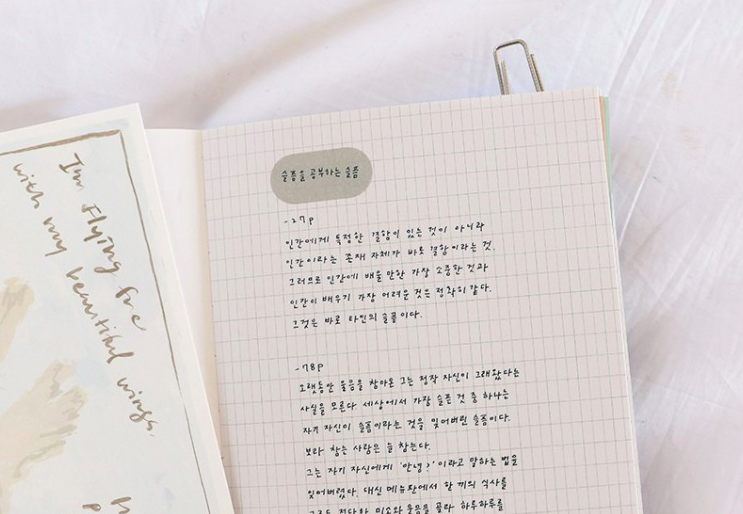 I'm Flying free
with my beautiful wings.
슬픔을 공부하는 슬픔
-27p
인간에게 특정한 결함이 있는 것이 아니라
인간이라는 존재 자체가 바로 결함이라는 것.
그러므로 인간에 배울 만한 가장 소중한 것과
인간이 배우기 가장 어려운 것은 정확히 같다.
그것은 바로 타인의 슬픔이다.
-78p
오랫동안 울음을 참아온 그는 정작 자신이 그래왔다는
사실을 모른다 세상에서 가장 슬픈 것 중 하나는
자기 자신이 슬픔이라는 것을 잊어버린 슬픔이다.
보라 참는 사람은 늘 참는다.
그는 자기 자신에게 '안녕?'이라고 말하는 법을
잊어버렸다. 대신 메뉴판에서 한 끼의 식사를
미소와 울음을 골라 하루하루를